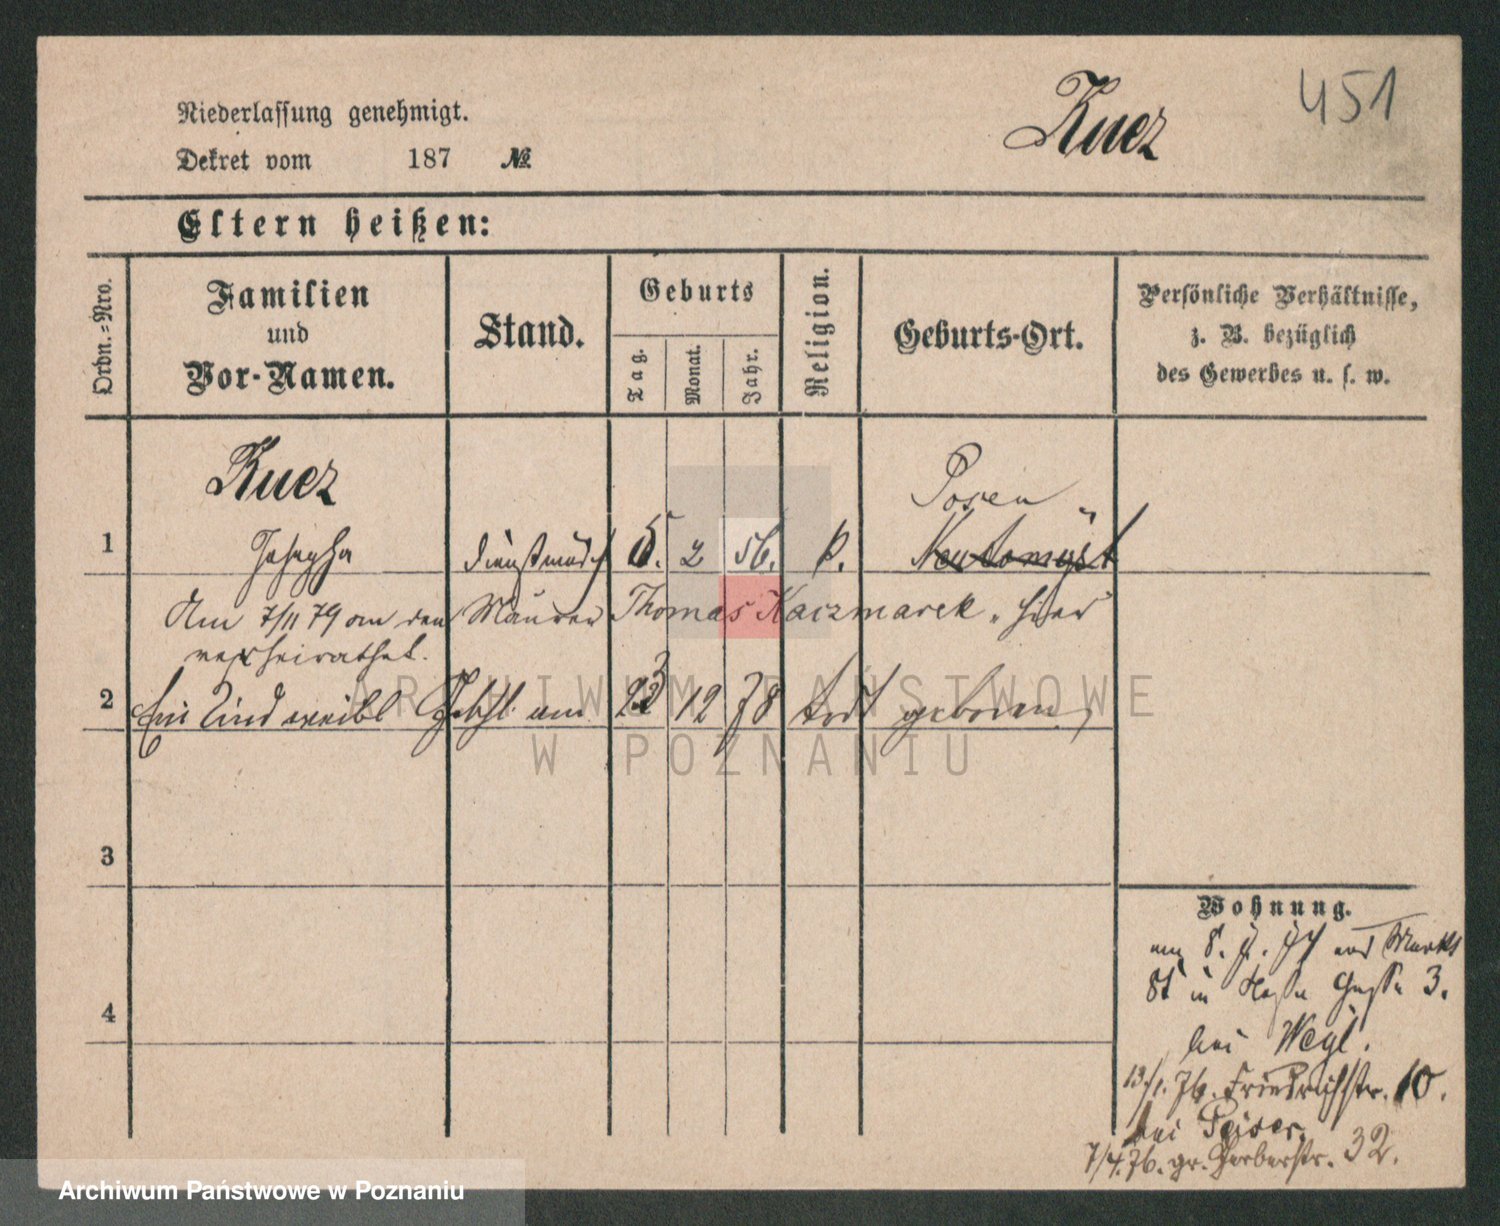 Niederlassung genehmigt.
Dekret vom 187 №
Kucz
451
Eltern heißen:
Ordn.=Nro.
Familien
und
Vor-Namen.
Stand.
Geburts
Tag.
Monat.
Jahr.
Religion.
Geburts-Ort.
Persönliche Verhältnisse,
z. B. bezüglich
des Gewerbes u. s. w.
Kucz
Posen
1 Josepha Dienstmädch 5. 2 56. k. Neutomyst
Am 7/11 79 an den Maurer Thomas Kaczmarek, hier
verheirathet.
2 Ein Kind weibl Geschl. am 23 12 78 todt geboren
ARCHIWUM PAŃSTWOWE
W POZNANIU
3
4
Wohnung.
am 8. Markt
in Gasse 3.
bei Wegl.
13/1. 76. Friedrichstr. 10.
bei Peiser.
7/4. 76. gr. Gerberstr. 32.
Archiwum Państwowe w Poznaniu